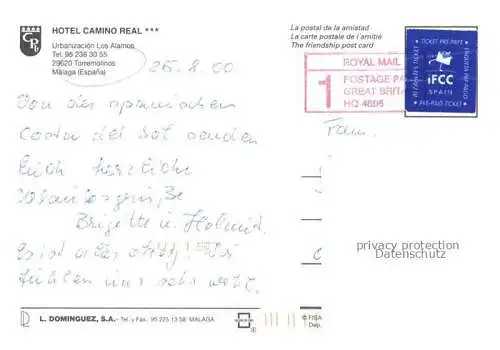 HOTEL CAMINO REAL ***
Urbanización Los Alamos
Tel. 95 238 30 55
29620 Torremolinos
Málaga (España)
La postal de la amistad
La carte postale de l'amitié
The friendship post card
ROYAL MAIL
1 POSTAGE PA
GREAT BRITA
HQ 4806
TICKET PRE-PAYE
IFCC
SPAIN
PRE-PAID TICKET
25.8.00
Von der spanischen
Costa del Sol senden
Euch herzliche
Brigitte u. Helmut
Es ist alles okay! Wir
fühlen uns sehr wohl.
Fam.
privacy protection
Datenschutz
L. DOMINGUEZ, S.A.- Tel. y Fax.: 95 223 13 58. MALAGA
© FISA
Dep.